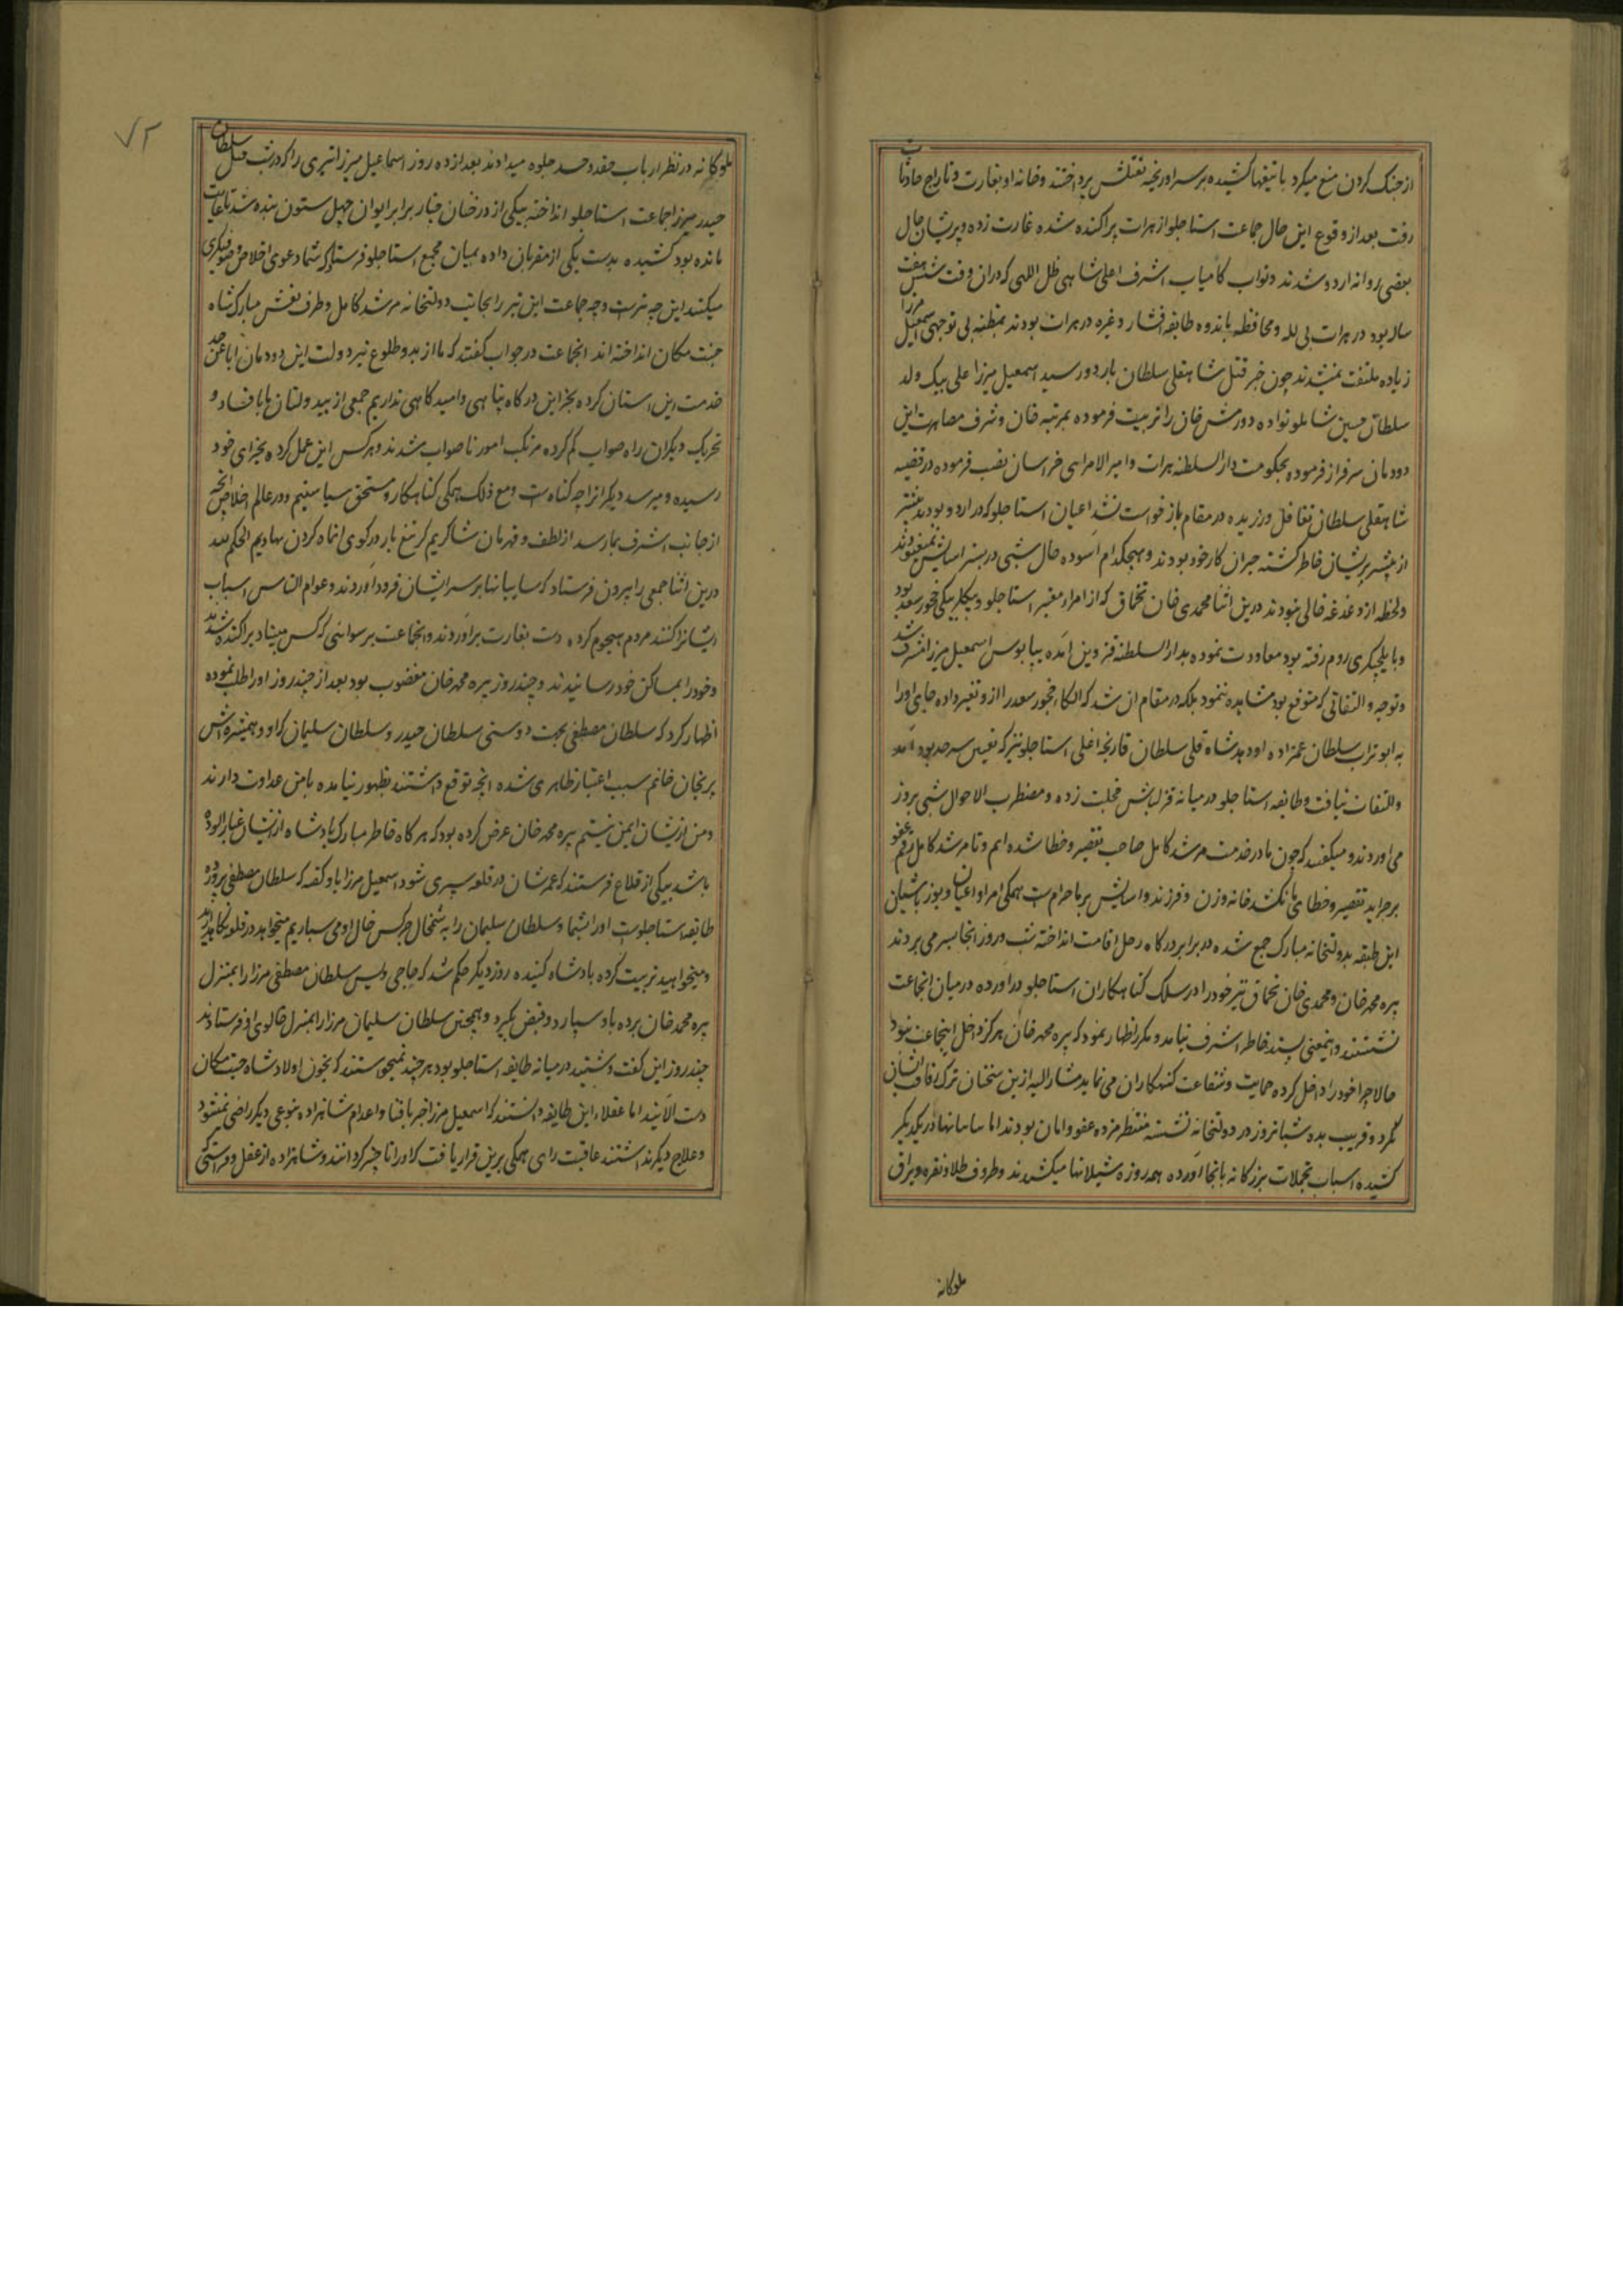 از جنک کردن منع میکرد با تیغهای کشیده بر سر او ریخته بقتلش پرداختند و خانه او بغارت و تاراج حادثات
رفت بعد از وقوع این حال جماعت استاجلو از هرات پراکنده شده غارت زده و پریشان حال
بعضی روانه اردو شدند و نواب کامیاب اشرف اعلی شاهی ظل اللهی که دران وقت شش هفت
ساله بود در هرات بی لله و محافظه مانده و طایفه افشار و غیره در هرات بودند بمظنه بی توجهی اسمعیل میرزا
زیاده ملتفت نمیشدند چون خبر قتل شاهقلی سلطان باردو رسید اسمعیل میرزا علی بیک ولد
سلطان حسین شاملو نواده دورمش خان را تربیت فرموده بمرتبه خان و شرف مصاهرت این
دودمان سرفراز فرموده بحکومت دار السلطنه هرات و امیر الامرایی خراسان نصب فرموده در قضیه
شاهقلی سلطان تغافل ورزیده در مقام بازخواست نشد اعیان استاجلو که در اردو بودند بیشتر
از پیشتر پریشان خاطر کشته حیران کار خود بودند و هیچکدام آسوده حال شبی در بستر آسایش نمیغنودند
و لحظه از دغدغه خالی نبودند درین اثنا محمدی خان تخماق که از امراء معتبر استاجلو و بیکلربیکی چخور سعد بود
و بایلچیکری روم رفته بود معاودت نموده بدار السلطنه قزوین آمده بپابوس اسمعیل میرزا مشرف شد
و توجه و التفاتی که متوقع بود مشاهده ننمود بلکه در مقام آن شد که الکاء چخور سعد را از و تغییر داده جای او را
به ابو تراب سلطان عمزاده او دهد شاه قلی سلطان قارنجه اغلی استاجلو نیز که بتعیین سرحد بود آمد
و التفات نیافت و طایفه استاجلو در میانه قزلباش خجلت زده و مضطرب الاحوال شبی بروز
می آوردند و میکفتند که چون ما در خدمت مرشد کامل صاحب تقصیر و خطا شده ایم و تا مرشد کامل رقم عفو
بر جراید تقصیر و خطای ما نکشد خانه و زن و فرزند و آسایش بر ما حرامست همکی امرا و اعیان و یوزباشیان
این طبقه بدولتخانه مبارک جمع شده در برابر درکاه رحل اقامت انداخته شب و روز آنجا بسر می بردند
پیره محمد خان و محمدی خان تخماق نیز خود را در سلک کناهکاران استاجلو در آورده در میان آنجماعت
نشستند و اینمعنی پسند خاطر اشرف نیامد و مکرر اظهار نمود که پیره محمد خان هرکز داخل اینجماعت نبود
حالا چرا خود را داخل کرده حمایت و شفاعت کنهکاران می نماید مشار الیه ازین سخنان ترک رفاقت ایشان
نکرد و قریب بده شبانروز در دولتخانه نشسته منتظر مژده عفو و امان بودند اما سایبانها در یکدیکر
کشیده اسباب تجملات بزرکانه بآنجا آورده همه روزه شیلانها میکشیدند و ظروف طلا و نقره و یراق
ملوکانه
۷۲
ملوکانه در نظر ارباب حقد و حسد جلوه میدادند بعد از ده روز اسماعیل میرزا تیری را که در شب قتل سلطان
حیدر میرزا جماعت استاجلو انداخته بیکی از درختان چنار برابر ایوان چهل ستون بند شده تا غایت
مانده بود کشیده بدست یکی از مقربان داده بمیان مجمع استاجلو فرستاد که شما دعوی اخلاص و صوفیکری
میکنید این چه تیرست و چه جماعت این تیر را بجانب دولتخانه مرشد کامل و طرف نعش مبارک شاه
جنت مکان انداخته اند آنجماعت در جواب کفتند که ما از بدو طلوع نیر دولت این دودمان ابا عن جد
خدمت این آستان کرده بجز این درکاه پناهی و امیدکاهی نداریم جمعی از بیدولتان ما بافساد و
تحریک دیکران راه صواب کم کرده مرتکب امور ناصواب شدند و هرکس این عمل کرده بجزای خود
رسیده و میرسد دیکرانرا چه کناهست و مع ذلک همکی کناهکار و مستحق سیاستیم و در عالم اخلاص آنچه
از جانب اشرف بما رسد از لطف و قهر بآن شاکریم کر تیغ بارد در کوی آن ماه کردن نهادیم الحکم لله
درین اثنا جمعی را بیرون فرستاد که سایبانها بر سر ایشان فرود آوردند و عوام الناس اسباب
ایشانرا کنند مردم هجوم کرده دست بغارت برآوردند و آنجماعت برسوائی که کس مبیناد پراکنده شدند
و خود را بمساکن خود رسانیدند و چند روز پیره محمد خان مغضوب بود بعد از چند روز او را طلب نموده
اظهار کرد که سلطان مصطفی بجهت دوستی سلطان حیدر و سلطان سلیمان که او و همشیره اش
پریخان خانم سبب اعتبار ظاهری شده آنچه توقع داشتند بظهور نیامده با من عداوت دارند
و من ازیشان ایمن نیستم پیره محمد خان عرض کرده بود که هرکاه خاطر مبارک پادشاه ازیشان غبار آلود
باشد بیکی از قلاع فرستند که عمرشان در قلعه سپری شود اسمعیل میرزا باو کفته که سلطان مصطفی پرورده
طایفه استاجلوست او را بشما و سلطان سلیمان را به شمخال چرکس خال او می سپاریم میخواهید در قلعه نکاهدارید
و میخواهید تربیت کرده پادشاه کنید روز دیکر حکم شد که حاجی ویس سلطان مصطفی میرزا را بمنزل
پیره محمد خان برده باو سپارد و قبض بکیرد و همچنین سلطان سلیمان میرزا را بمنزل خالوی او فرستادند
چند روز این کفت و شنید در میانه طایفه استاجلو بود هر چند نمیخواستند که بخون اولاد شاه جنت مکان
دست آلایند اما عقلاء این طایفه دانستند که اسمعیل میرزا جز بافنا و اعدام شاهزاده بنوعی دیکر راضی نمیشود
و علاج دیکر نداشتند عاقبت رای همکی برین قرار یافت که او را ناچیز کردانند و شاهزاده از عقل و